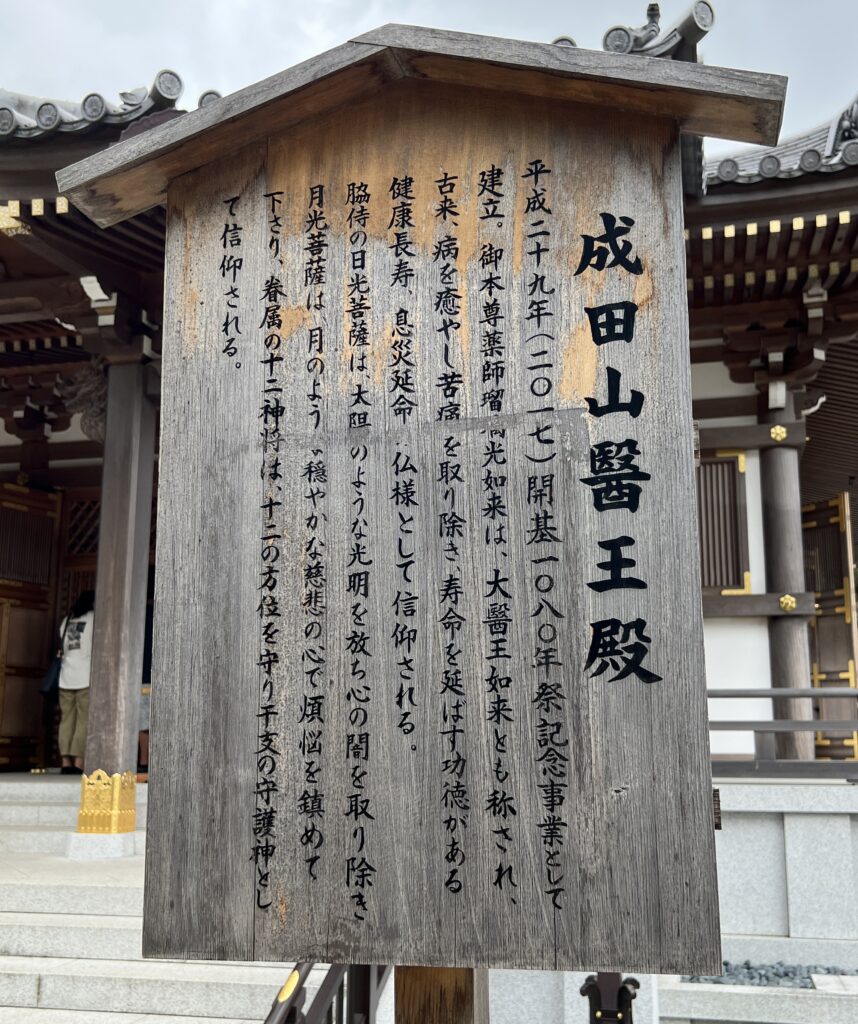 成田山醫王殿
平成二十九年（二〇一七）開基一〇八〇年祭記念事業として
建立。御本尊薬師瑠璃光如来は、大醫王如来とも称され、
古来、病を癒やし苦痛を取り除き、寿命を延ばす功徳がある
健康長寿、息災延命 仏様として信仰される。
脇侍の日光菩薩は、太陽のような光明を放ち心の闇を取り除き
月光菩薩は、月のよう 穏やかな慈悲の心で煩悩を鎮めて
下さり、眷属の十二神将は、十二の方位を守り干支の守護神とし
て信仰される。